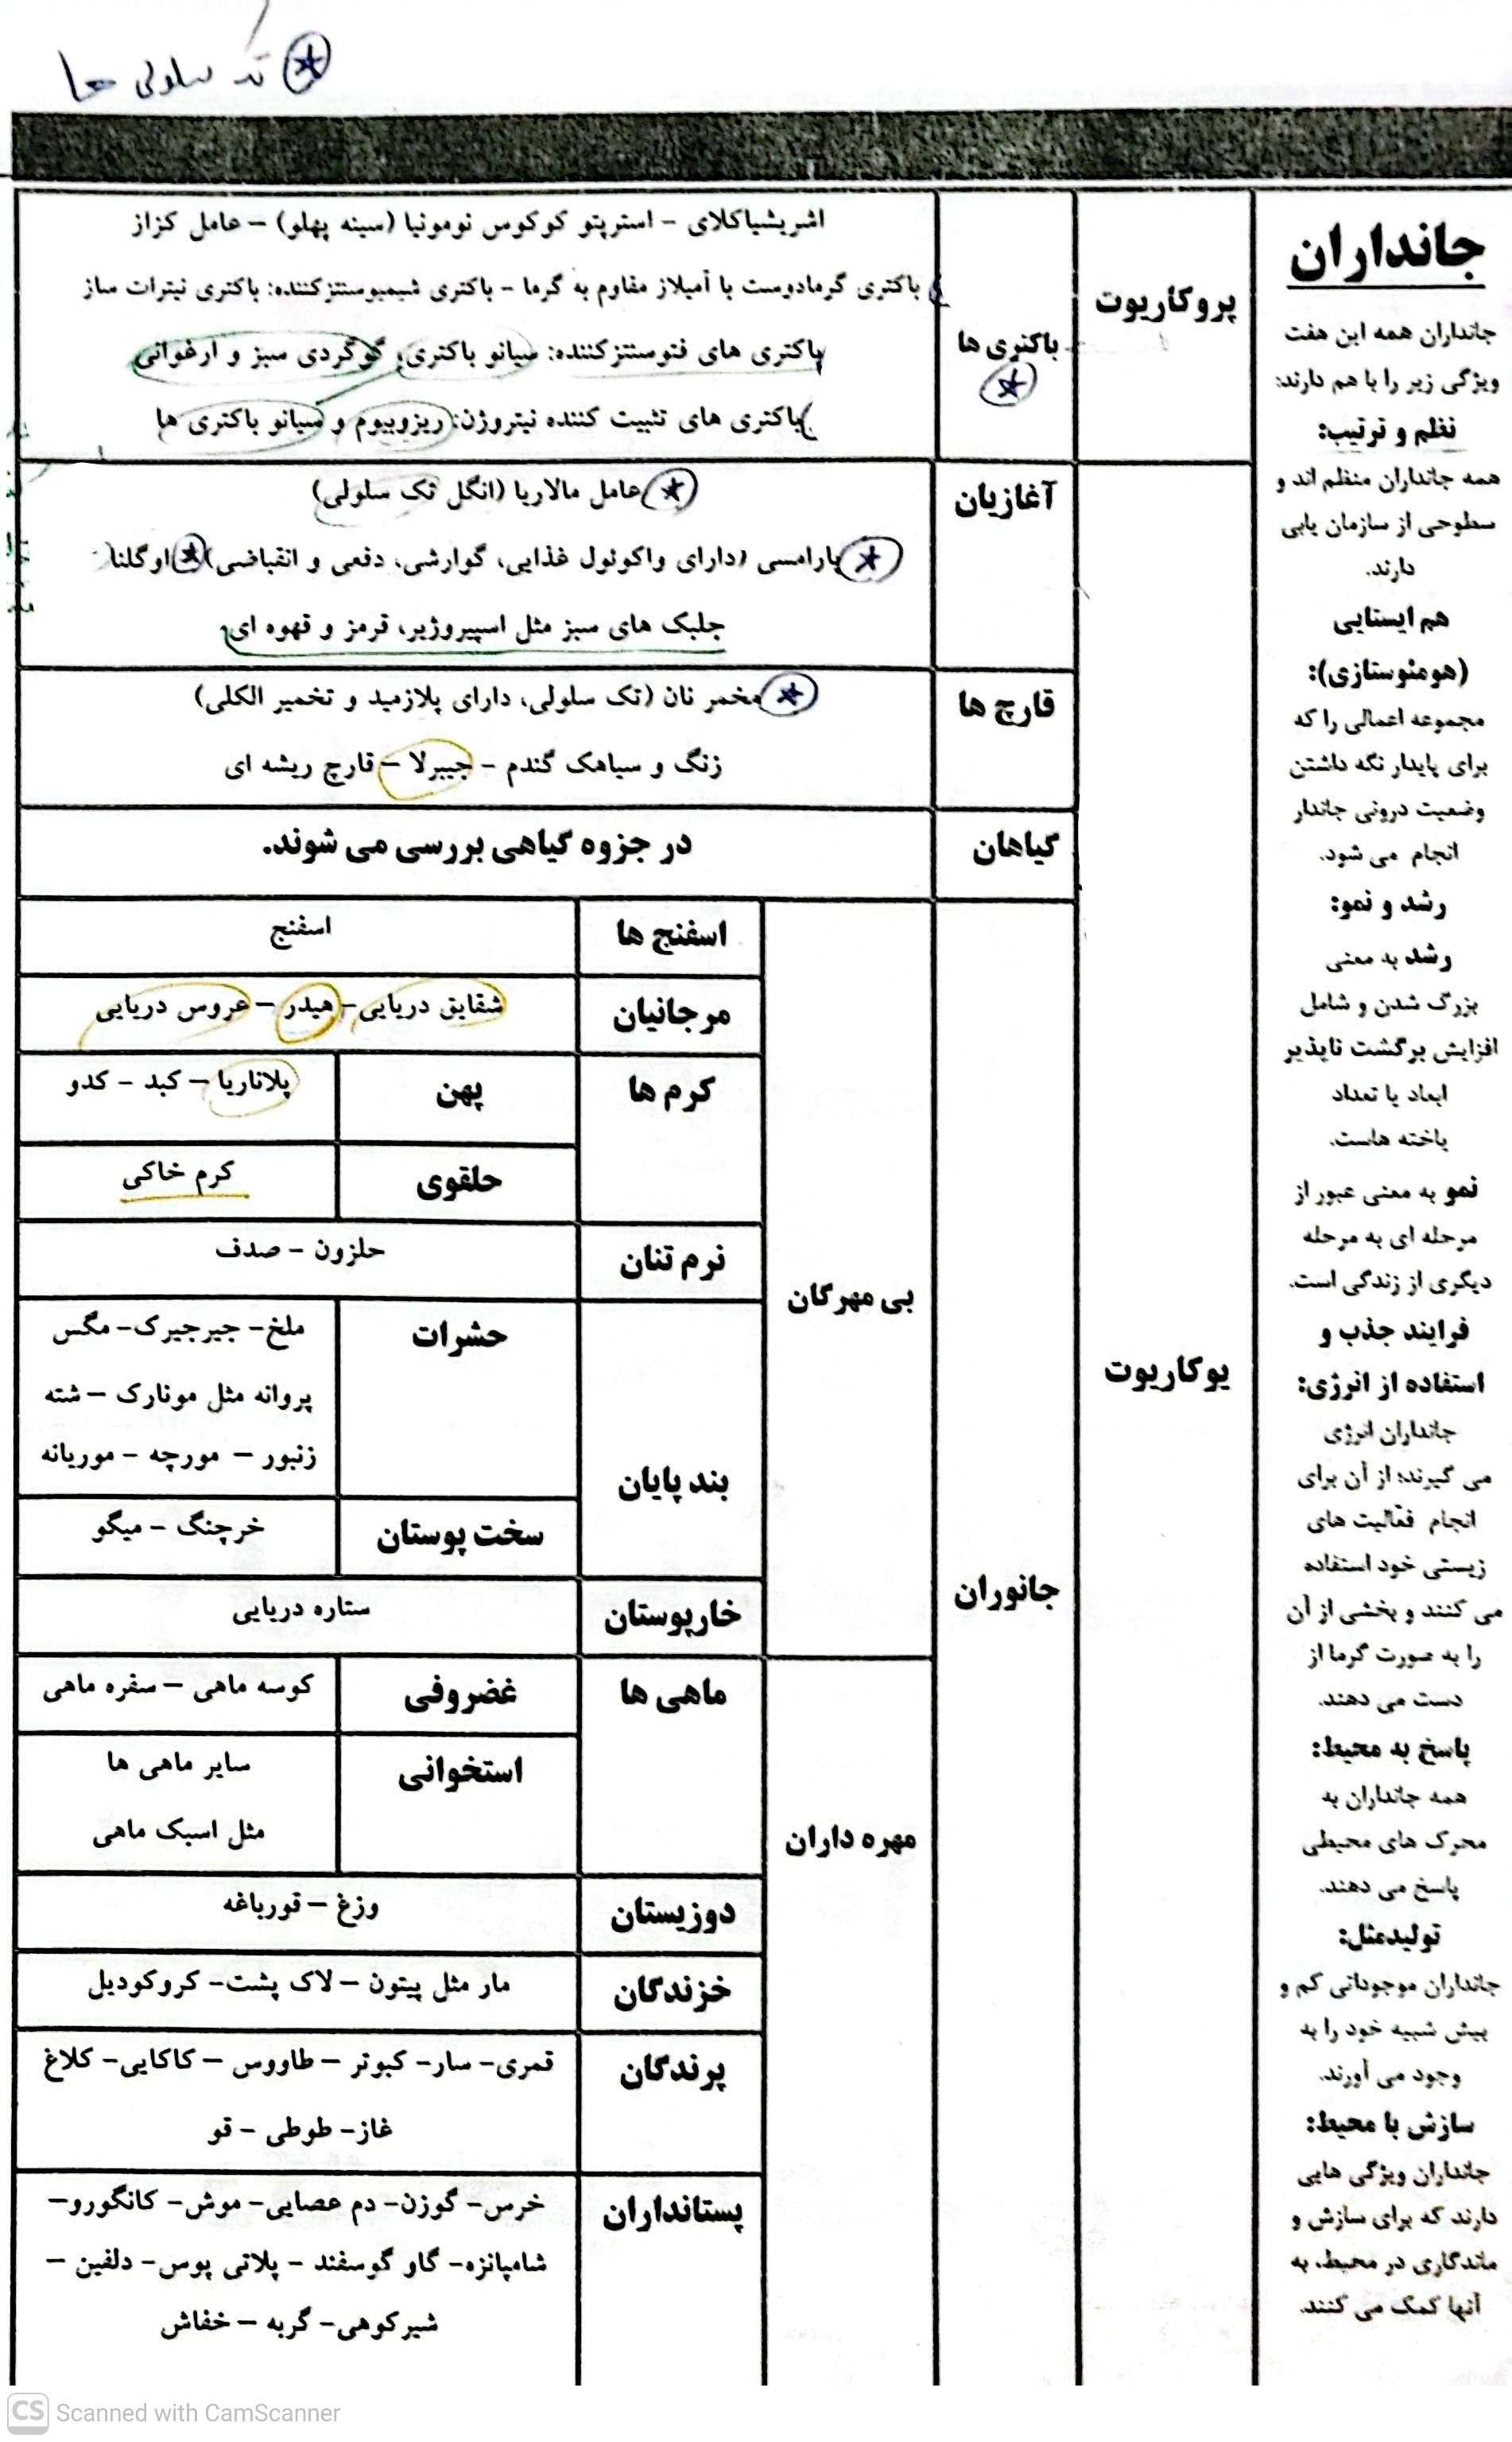 تک سلولی ها
جانداران
جانداران همه این هفت
ویژگی زیر را با هم دارند:
نظم و ترتیب:
همه جانداران منظم اند و
سطوحی از سازمان یابی
دارند.
هم ایستایی
(هومئوستازی):
مجموعه اعمالی را که
برای پایدار نگه داشتن
وضعیت درونی جاندار
انجام می شود.
رشد و نمو:
رشد به معنی
بزرگ شدن و شامل
افزایش برگشت ناپذیر
ابعاد یا تعداد
یاخته هاست.
نمو به معنی عبور از
مرحله ای به مرحله
دیگری از زندگی است.
فرایند جذب و
استفاده از انرژی:
جانداران انرژی
می گیرند؛ از آن برای
انجام فعّالیت های
زیستی خود استفاده
می کنند و بخشی از آن
را به صورت گرما از
دست می دهند.
پاسخ به محیط:
همه جانداران به
محرک های محیطی
پاسخ می دهند.
تولیدمثل:
جانداران موجوداتی کم و
بیش شبیه خود را به
وجود می آورند.
سازش با محیط:
جانداران ویژگی هایی
دارند که برای سازش و
ماندگاری در محیط، به
آنها کمک می کنند.
پروکاریوت
باکتری ها
اشریشیاکلای - استرپتو کوکوس نومونیا (سینه پهلو) – عامل کزاز
باکتری گرمادوست با آمیلاز مقاوم به گرما - باکتری شیمیوسنتزکننده: باکتری نیترات ساز
باکتری های فتوسنتزکننده: سیانو باکتری، گوگردی سبز و ارغوانی
باکتری های تثبیت کننده نیتروژن: ریزوبیوم و سیانو باکتری ها
یوکاریوت
آغازیان
عامل مالاریا (انگل تک سلولی)
پارامسی (دارای واکوئول غذایی، گوارشی، دفعی و انقباضی) اوگلنا
جلبک های سبز مثل اسپیروژیر، قرمز و قهوه ای
قارچ ها
مخمر نان (تک سلولی، دارای پلازمید و تخمیر الکلی)
زنگ و سیاهک گندم - جیبرلا – قارچ ریشه ای
گیاهان
در جزوه گیاهی بررسی می شوند.
جانوران
بی مهرگان
اسفنج ها
اسفنج
مرجانیان
شقایق دریایی - هیدر – عروس دریایی
کرم ها
پهن
پلاناریا – کبد - کدو
حلقوی
کرم خاکی
نرم تنان
حلزون - صدف
بند پایان
حشرات
ملخ- جیرجیرک- مگس
پروانه مثل مونارک – شته
زنبور – مورچه - موریانه
سخت پوستان
خرچنگ - میگو
خارپوستان
ستاره دریایی
مهره داران
ماهی ها
غضروفی
کوسه ماهی – سفره ماهی
استخوانی
سایر ماهی ها
مثل اسبک ماهی
دوزیستان
وزغ – قورباغه
خزندگان
مار مثل پیتون – لاک پشت- کروکودیل
پرندگان
قمری- سار- کبوتر – طاووس – کاکایی- کلاغ
غاز- طوطی - قو
پستانداران
خرس- گوزن- دم عصایی- موش- کانگورو–
شامپانزه- گاو گوسفند - پلاتی پوس- دلفین –
شیرکوهی- گربه – خفاش
CS Scanned with CamScanner